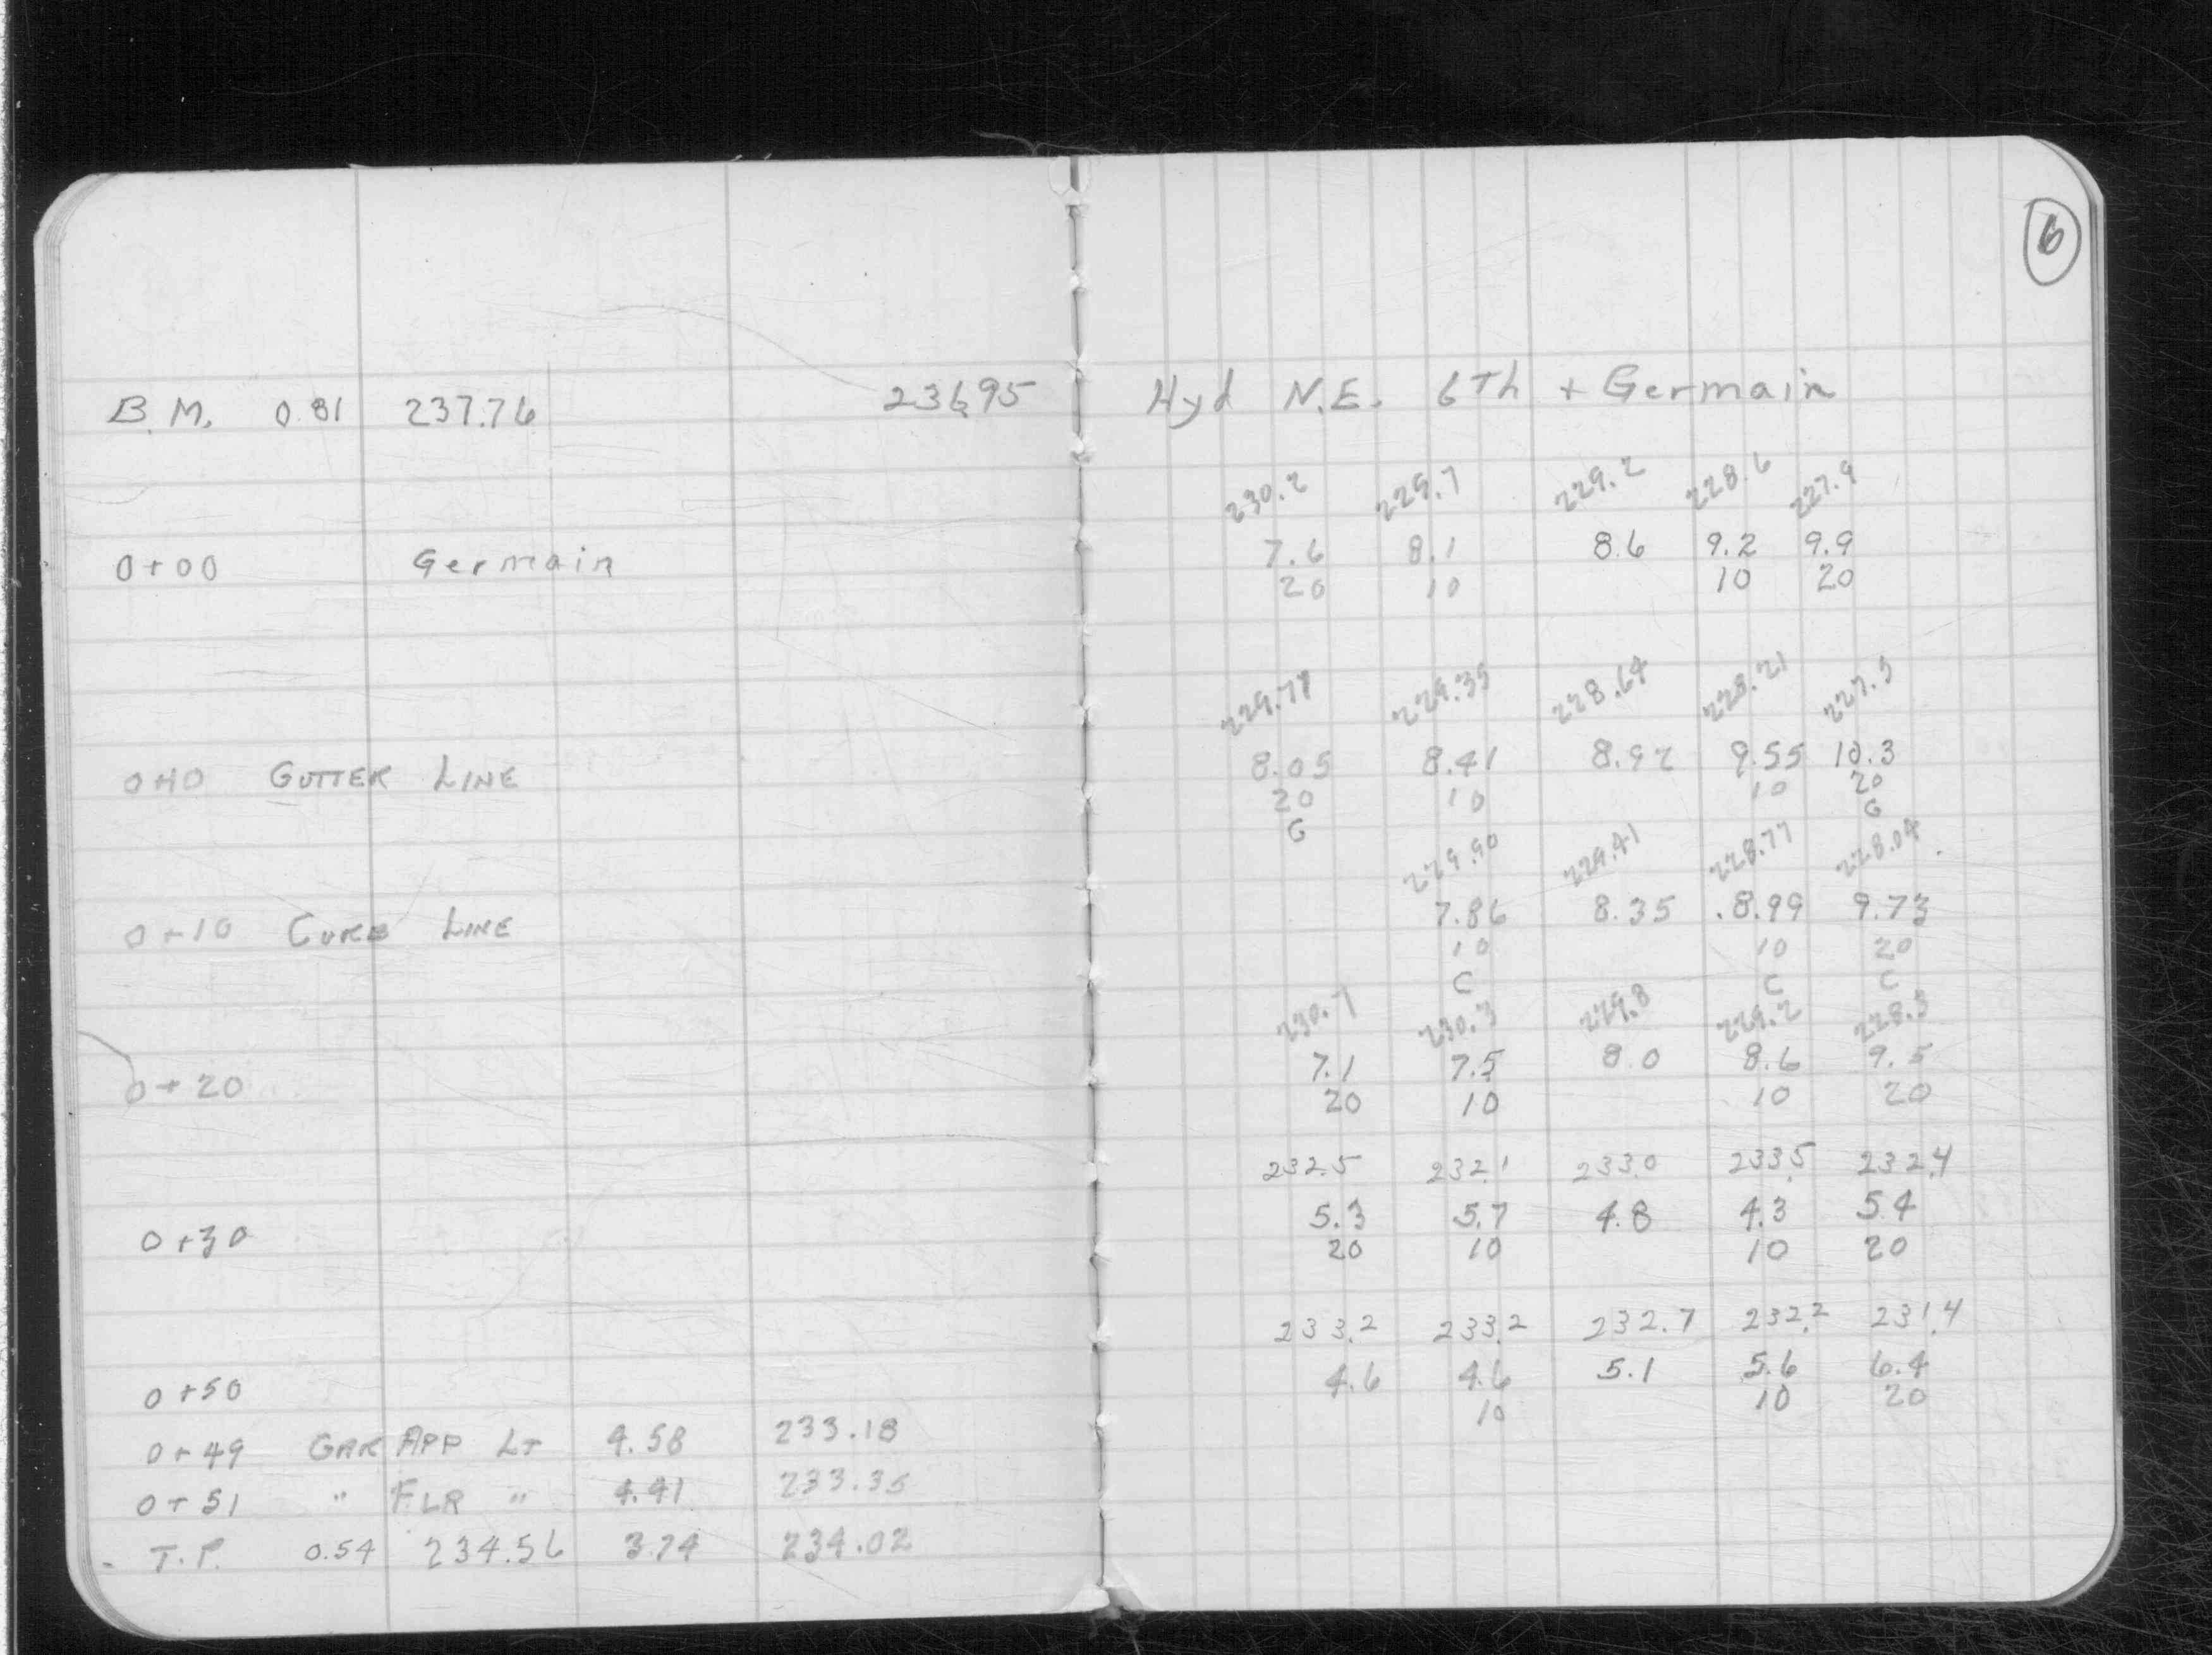 6
B.M. 0.81 237.76 236.95 Hyd N.E. 6Th + Germain
230.2 229.7 229.2 228.6 227.9
0+00 Germain 7.6 8.1 8.6 9.2 9.9
20 10 10 20
229.71 229.35 228.64 228.21 227.5
0+10 GUTTER LINE 8.05 8.41 8.92 9.55 10.3
20 10 10 20
G G
229.90 229.41 228.77 228.04
0+10 CURB LINE 7.86 8.35 8.99 9.73
10 10 20
C C C
230.7 230.3 229.8 229.2 228.3
0+20 7.1 7.5 8.0 8.6 9.5
20 10 10 20
232.5 232.1 233.0 233.5 232.4
0+30 5.3 5.7 4.8 4.3 5.4
20 10 10 20
233.2 233.2 232.7 232.2 231.4
0+50 4.6 4.6 5.1 5.6 6.4
10 10 20
0+49 GAR APP LT 4.58 233.18
0+51 " FLR " 4.41 233.35
T.P. 0.54 234.56 3.74 234.02